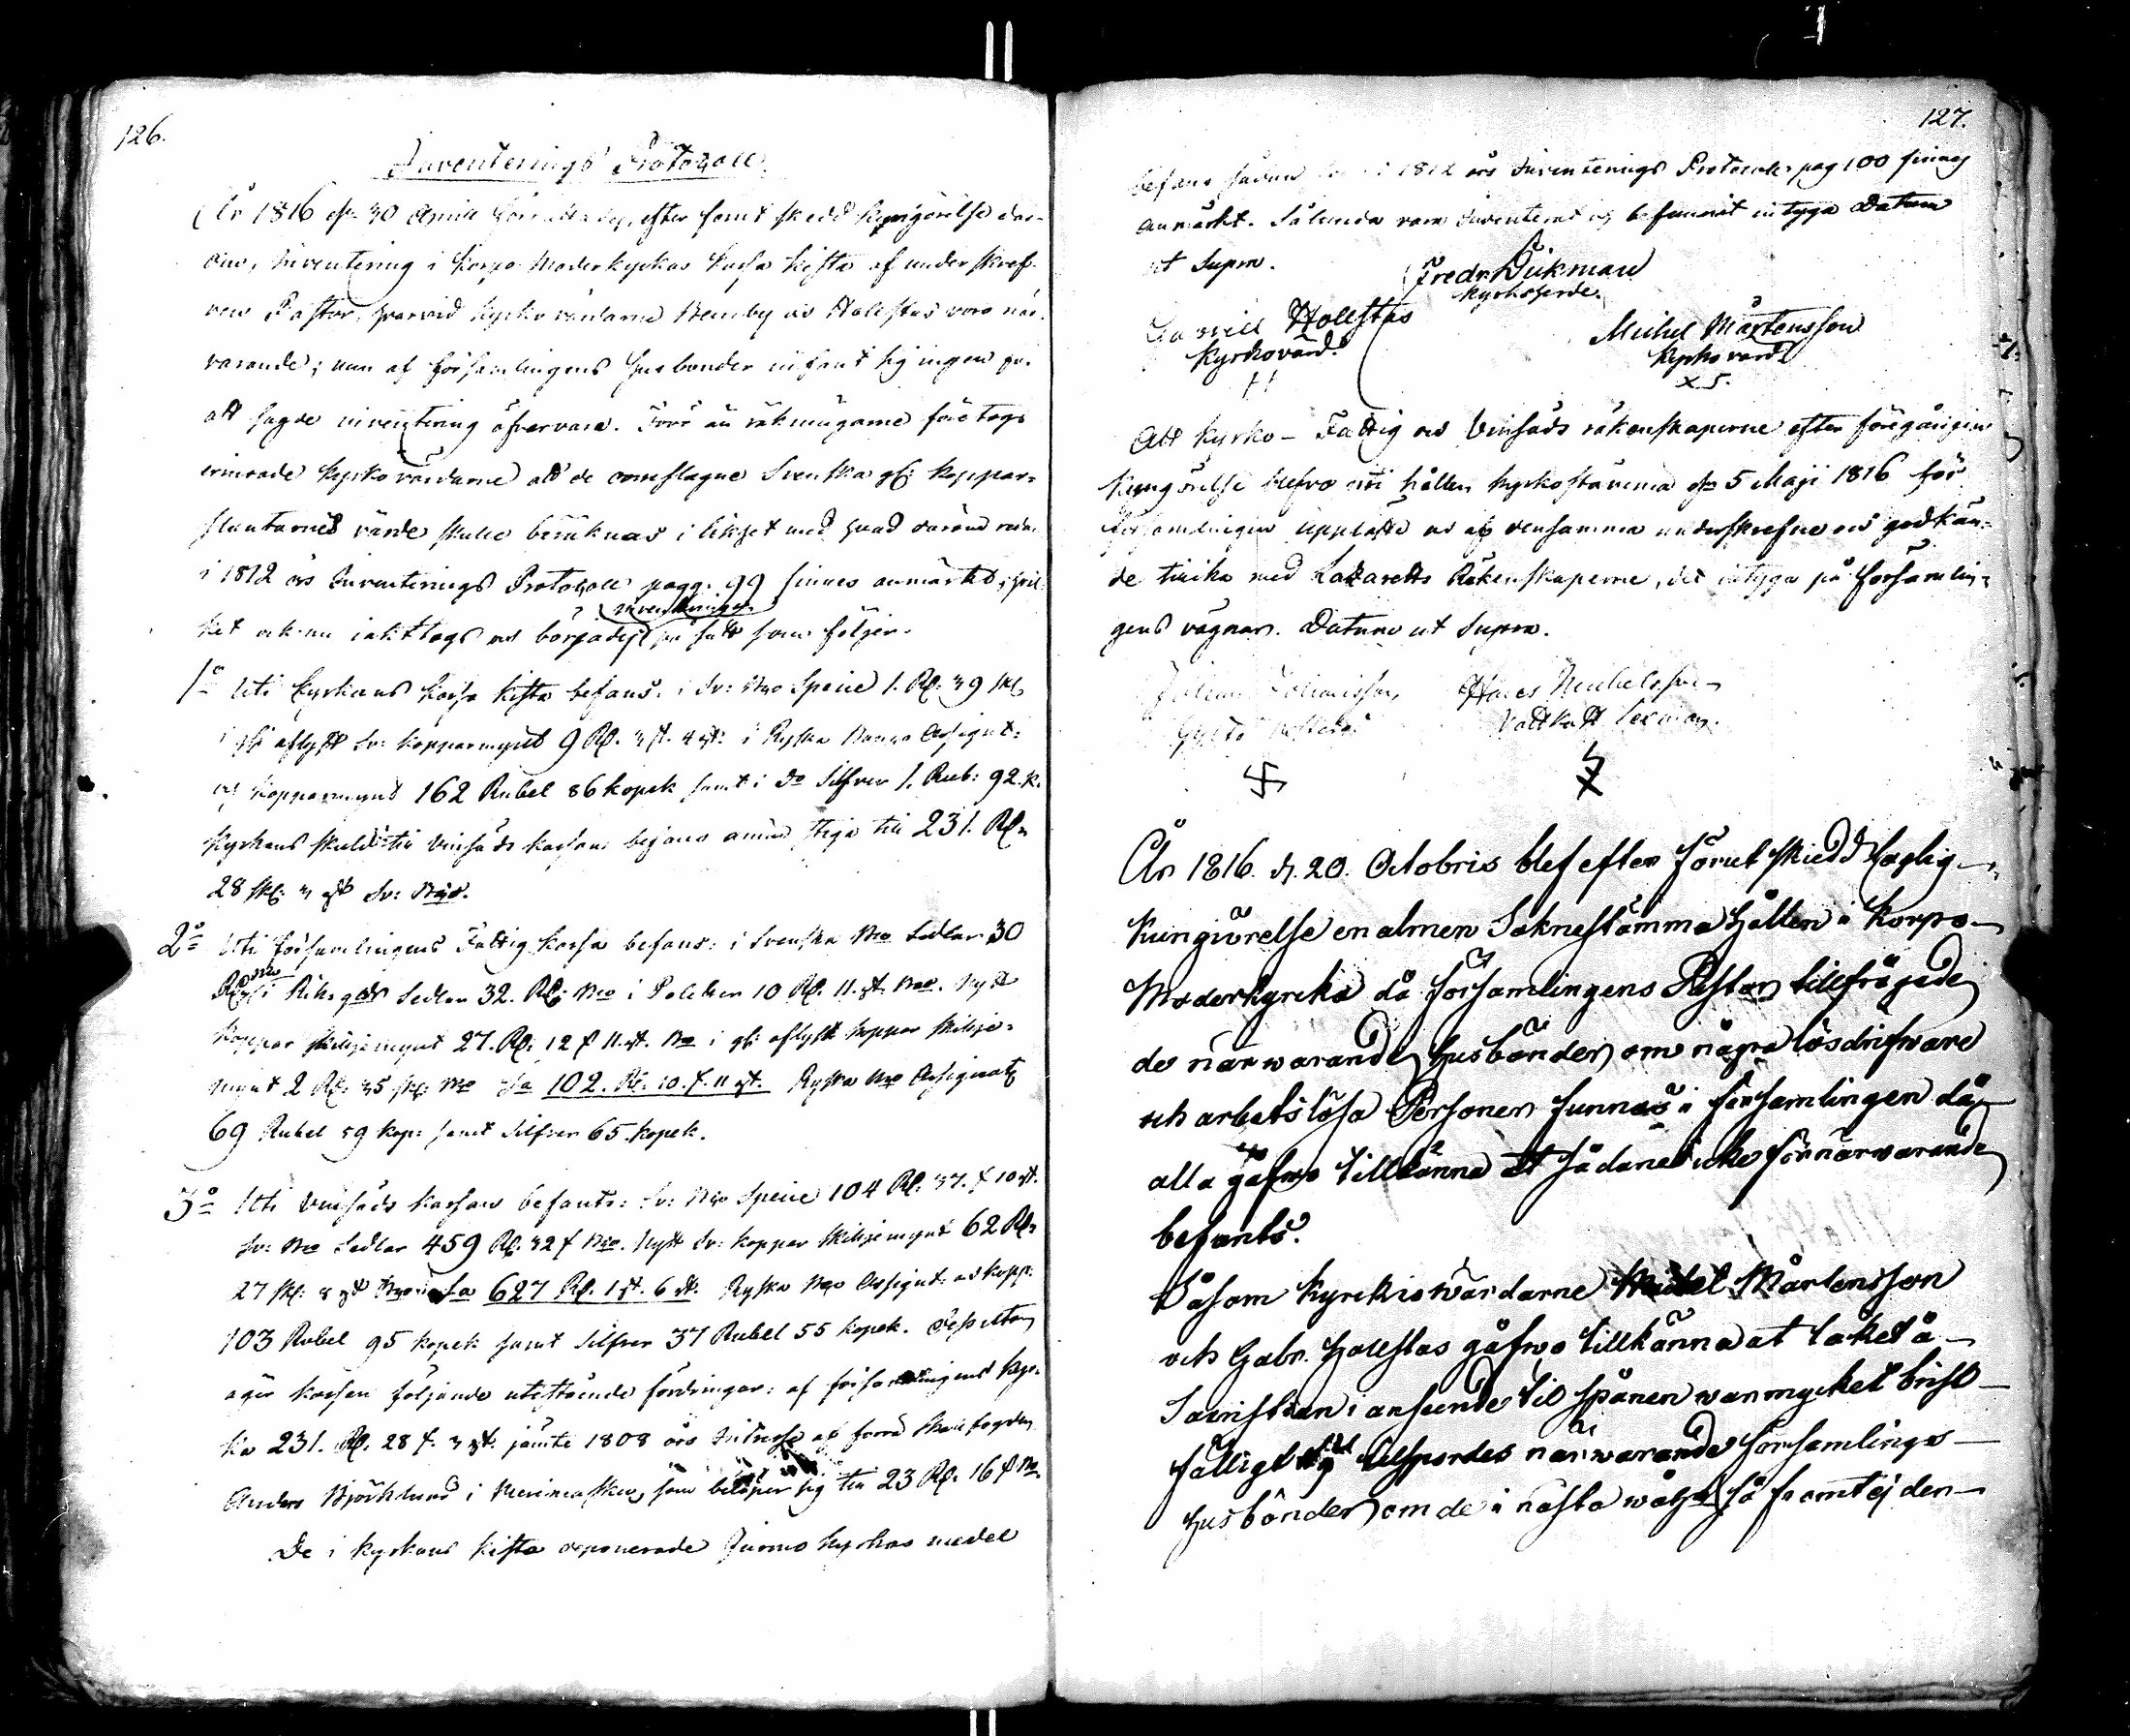 126.
Inventerings Protocoll.
År 1816 d. 30 April förrättades, efter förut skedd kungörelse der-
om, Inventering i Korpo Moderkyrkas Kassa Kista af underskref-
ven Pastor, hvarvid Kyrkovärdarne Wenby och Hollstas voro när-
varande; men af församlingens husbönder infant sig ingen för
att sagde inventering öfvervara. Förr än räkningarne företogs
erinrade Kyrkovärdarne att de omslagne Svenska gl: koppar-
slantarnes värde skulle beräknas i likhet med hvad derom redan
i 1812 års Inventerings Protocoll pagg. 99 finnes anmärkt, hvil-
ket ock nu iakttogs och börjades inventeringen på sätt som följer.
1o Uti Kyrkans Kassa Kista befans: i Sv: Bco Specie 1. Rd: 39 sk:
i gl: aflyst Sv: kopparmynt 9 Rd. 3 st. 4 rst: i Ryska Banco Assignat:
och Kopparmynt 162 Rubel 86 kopek samt i do Silfver 1. Rub: 92. k.
Kyrkans skuld til Vinsäds kassan befans ännu stiga till 231. Rd:
28 sk: 3 rst Sv: Bco.
2o Uti församlingens Fattig kassa befans: i Svenska Bco Sedlar 30
Rd: Bco i Riksgäds Sedlar 32. Rd: Bco i Poletter 10 Rd. 11. st. Bco. Nytt
Koppar skiljemynt 27. Rd: 12 s 11. rst. Bco i gl: aflyst koppar skilje-
mynt 2 Rd: 35 sk: Bco Sa 102. Rd: 10. s. 11 rst. Ryska Bco Assignat:
69 Rubel 59 kop: samt Silfver 65 kopek.
3o Uti Vinsäds kassan befants: Sv: Bco Specie 104 Rd: 37. s 10 rst.
Sv: Bco Sedlar 459 Rd: 32 s Bco. Nytt Sv: koppar skiljemynt 62 Rd:
27 sk: 8 rst Bco Sa 627 Rd. 1 st. 6 rst. Ryska Bco Assignat: och kopp:
103 Rubel 95 kopek samt Silfver 37 Rubel 55 kopek. Dessutom
äger kassan följande utestående fordringar: af församlingens kyr-
ka 231. Rd. 28 s. 3 rst. jämte 1808 års Intresse af förra
Anders Björklund i som belöper sig till 23 Rd. 16 s Bco.
De i Kyrkans Kista deponerade Jurmo kyrkas medel
127.
befans sådan som i 1812 års Inventerings Protocoll pag 100 finnes
anmärkt. Sålunda vara inventerat och befunnit intyga Datum
ut Supra.
Fredr. Dikman
Kyrkoherde.
Gabriel Hollstas
Kyrkovärd.
Michel Mårtensson
Kyrkovärd
Att Kyrko- Fattig och Vinsäds räkenskaperne efter föregången
kungörelse blefvo uti hållen kyrkostämma d. 5 Maji 1816 för
församlingen uppläste och af densamma underskrefne och godkän-
de tillika med Lazaretts Räkenskaperne, det intyga på församlin-
gens vägnar. Datum ut Supra.
Johan Johansson Hans Michelsson
Vattkast
År 1816. d. 20. Octobris blef efter förut skiedd laglig
Kungiörelse en almen Soknestämma hållen i Korpo
Moderkyrcka då församlingens Pastor tillfrågade
de närwarande husbönder om några lösdrifware
och arbetslösa Personer funnas i församlingen då
alla gåfwo tillkänna at sådane icke för närwarande
befants.
Såsom Kyrckiowärdarne Michel Mårtensson
och Gabr. Hollstas gåfwo tillkänna at taket å
Sacristian i anseende til spånen war mycket brist
fälligt tilspordes närwarande församlings
husbönder om de i nästa wåhr så framt ej den